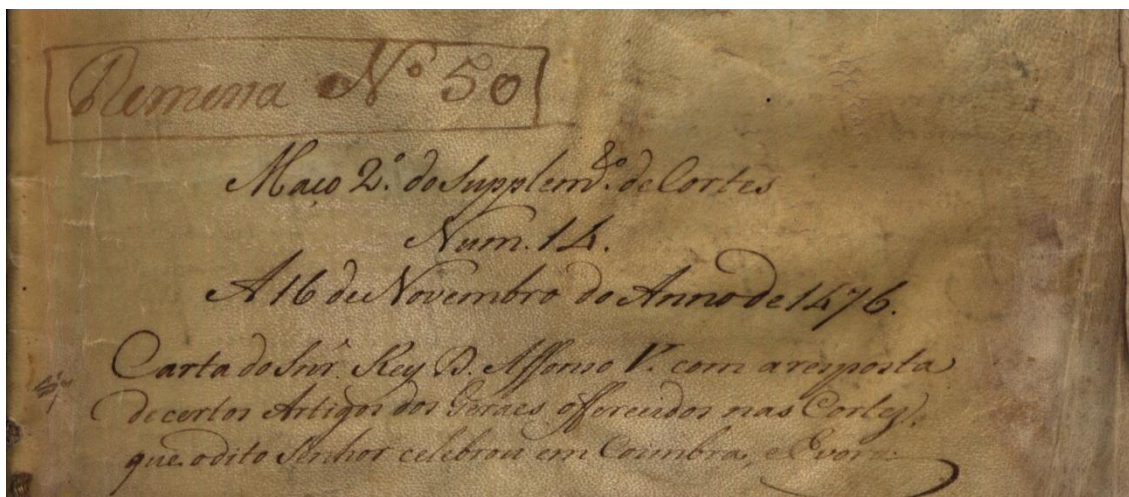 Remessa Nº 50
Maço 2.º do Supplem.to de Cortes
Num. 14.
A 16 de Novembro do Anno de 1476.
Carta do Snr. Rey D. Affonso V. com a resposta
de certos Artigos dos Geraes, offerecidos nas Cortes,
que o dito Senhor celebrou em Coimbra, e Evora